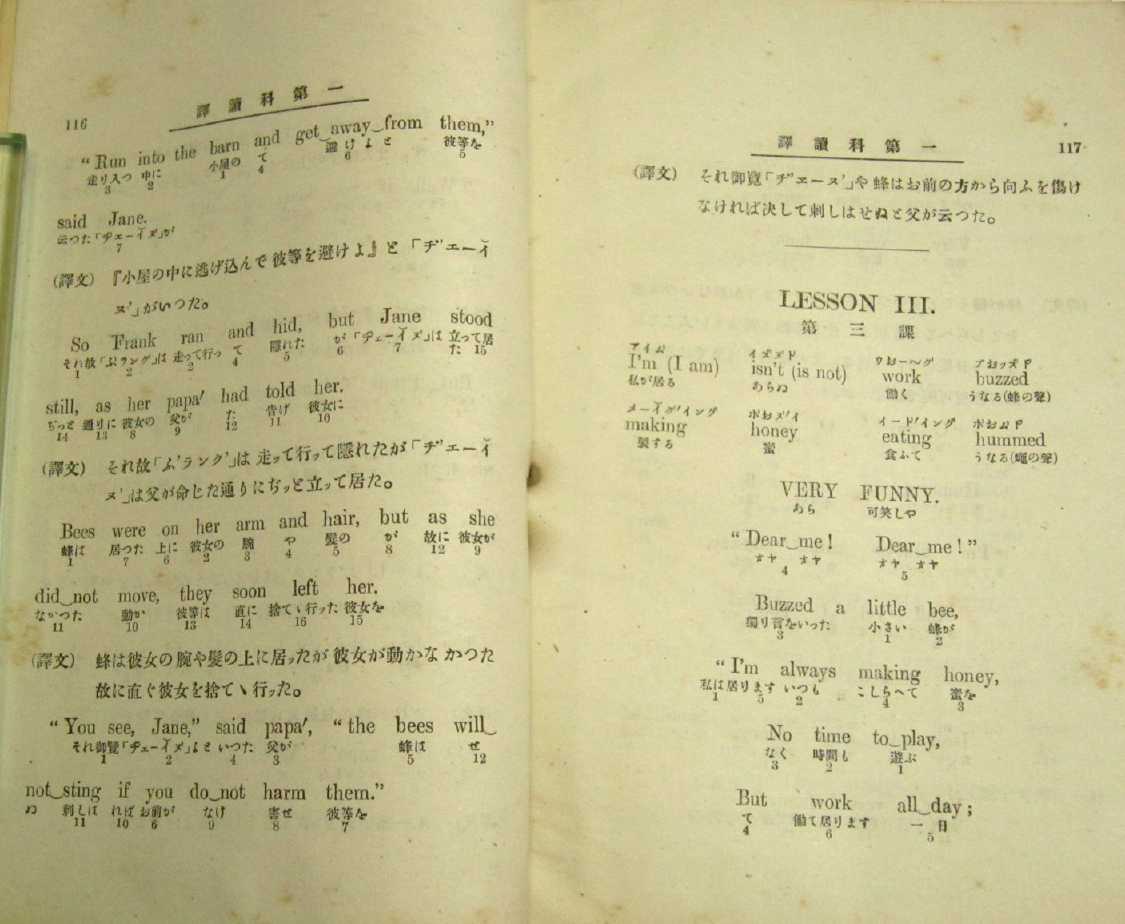 116
譯讀科第一
"Run into the barn and get away from them,"
走り入つ 中に 小屋の て 避けよと 彼等を
3 2 1 4 6 5
said Jane.
云つた「ヂェーイヌ」が
7
(譯文) 『小屋の中に逃げ込んで彼等を避けよ』と「ヂ'エーイ
ヌ'」がいつた。
So Frank ran and hid, but Jane stood
それ故「ふランク」は 走って行っ て 隠れた が「ヂェーイヌ」は 立って居た
1 2 2 4 5 6 7 15
still, as her papa' had told her.
ぢっと 通りに 彼女の 父が た 告げ 彼女に
14 13 8 9 12 11 10
(譯文) それ故「ふ'ランク'」は走って行って隠れたが「ヂ'エーイ
ヌ'」は父が命じた通りにぢッと立って居た。
Bees were on her arm and hair, but as she
蜂は 居つた 上に 彼女の 腕 や 髪の が 故に 彼女が
1 7 6 2 3 4 5 8 12 9
did not move, they soon left her.
なかつた 動か 彼等は 直に 捨てゝ行ッた 彼女を
11 10 13 14 16 15
(譯文) 蜂は彼女の腕や髪の上に居ッたが彼女が動かなかつた
故に直ぐ彼女を捨てゝ行ッた。
"You see, Jane," said papa', "the bees will
それ御覽「ヂェーイヌ」よと いつた 父が 蜂は せ
1 2 4 3 5 12
not sting if you do not harm them."
ぬ 刺しは れば お前が なけ 害せ 彼等を
11 10 6 9 8 7
譯讀科第一
117
(譯文) それ御覽「ヂ'エーヌ'」や蜂はお前の方から向ふを傷け
なければ決して刺しはせぬと父が云つた。
LESSON III.
第三課
アイム イズズド ワおーーク' ブおッズド
I'm (I am) isn't (is not) work buzzed
私が居る あらぬ 働く うなる(蜂の聲)
メーイク'イング ホおヌ'イ イード'イング ホおムド
making honey eating hummed
製する 蜜 食ふて うなる(蠅の聲)
VERY FUNNY.
あら 可笑しや
"Dear me! Dear me!"
オヤ オヤ オヤ オヤ
4 5
Buzzed a little bee,
獨り言をいった 小さい 蜂が
3 1 2
"I'm always making honey,
私は居ります いつも こしらへて 蜜を
1 5 2 4 3
No time to play,
なく 時間も 遊ぶ
3 2 1
But work all day;
て 働て居ります 一日
4 6 5